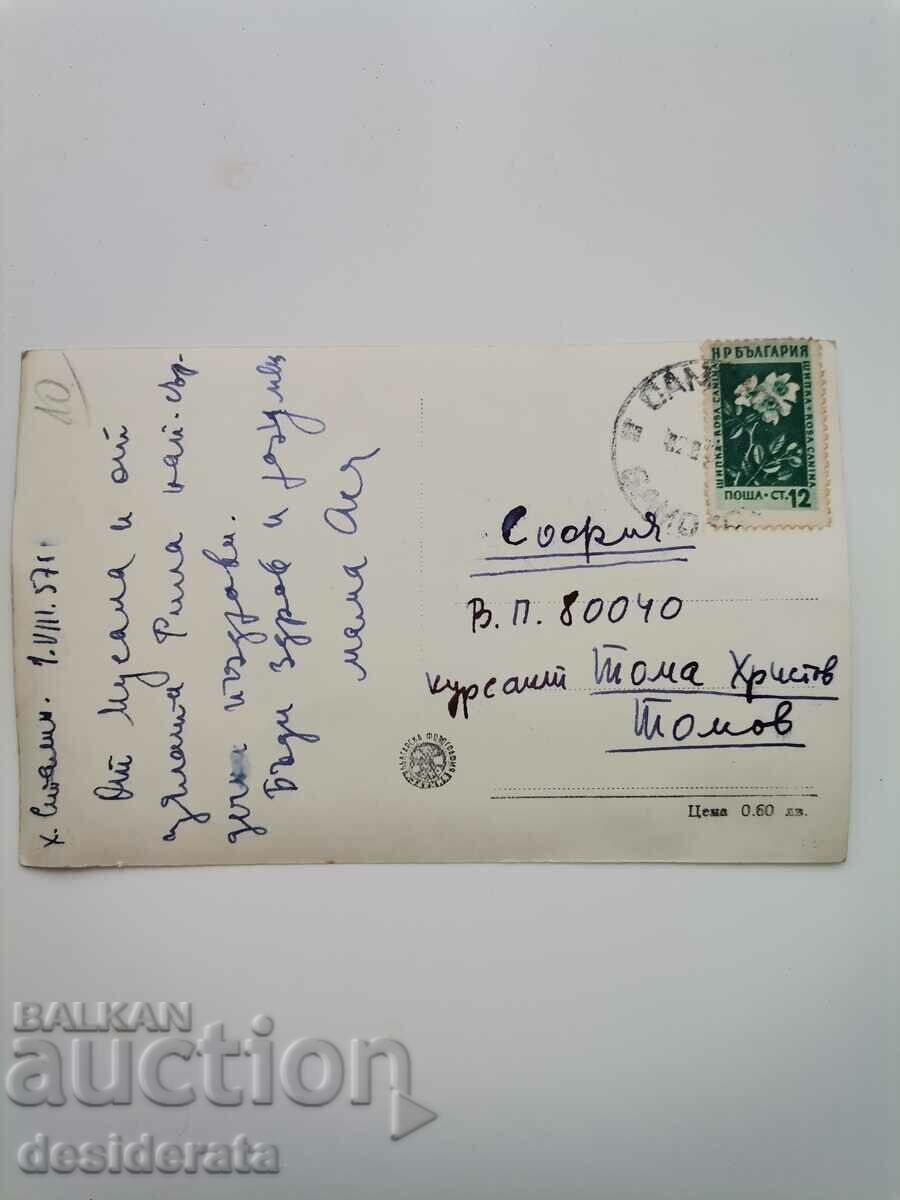 10
х. Сталин. 1.VIII.57 г.
От Мусала и от
цялата Рила най-сър-
дечни поздрави.
Бъди здрав и
мама
НР БЪЛГАРИЯ
ШИПКА • ROSA CANINA
ШИПКА • ROSA CANINA
ПОЩА • СТ. 12
САМО
София
В.П. 80040
курсант Тома Христов
Томов
БЪЛГАРСКА ФОТОГРАФИЯ
Цена 0.60 лв.
BALKAN
auction
desiderata